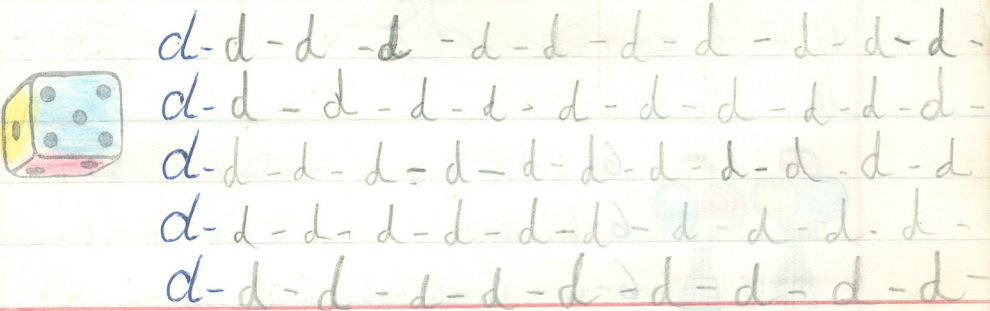 d - d - d - d - d - d - d - d - d - d - d -
d - d - d - d - d - d - d - d - d - d - d -
d - d - d - d - d - d - d - d - d - d - d - d
d - d - d - d - d - d - d - d - d - d - d -
d - d - d - d - d - d - d - d - d - d -